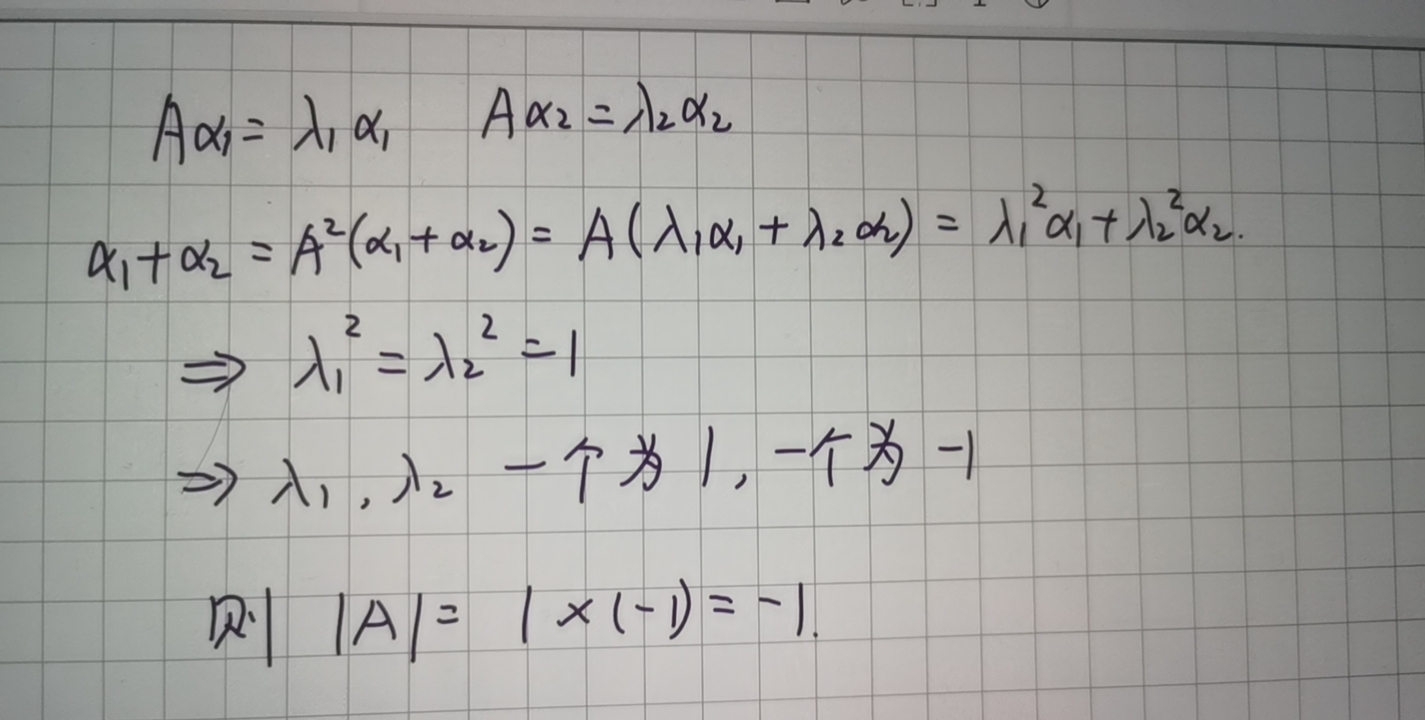 Aα₁ = λ₁α₁ Aα₂ = λ₂α₂
α₁ + α₂ = A²(α₁ + α₂) = A(λ₁α₁ + λ₂α₂) = λ₁²α₁ + λ₂²α₂.
⇒ λ₁² = λ₂² = 1
⇒ λ₁, λ₂ 一个为 1, 一个为 -1
则 |A| = 1 × (-1) = -1.